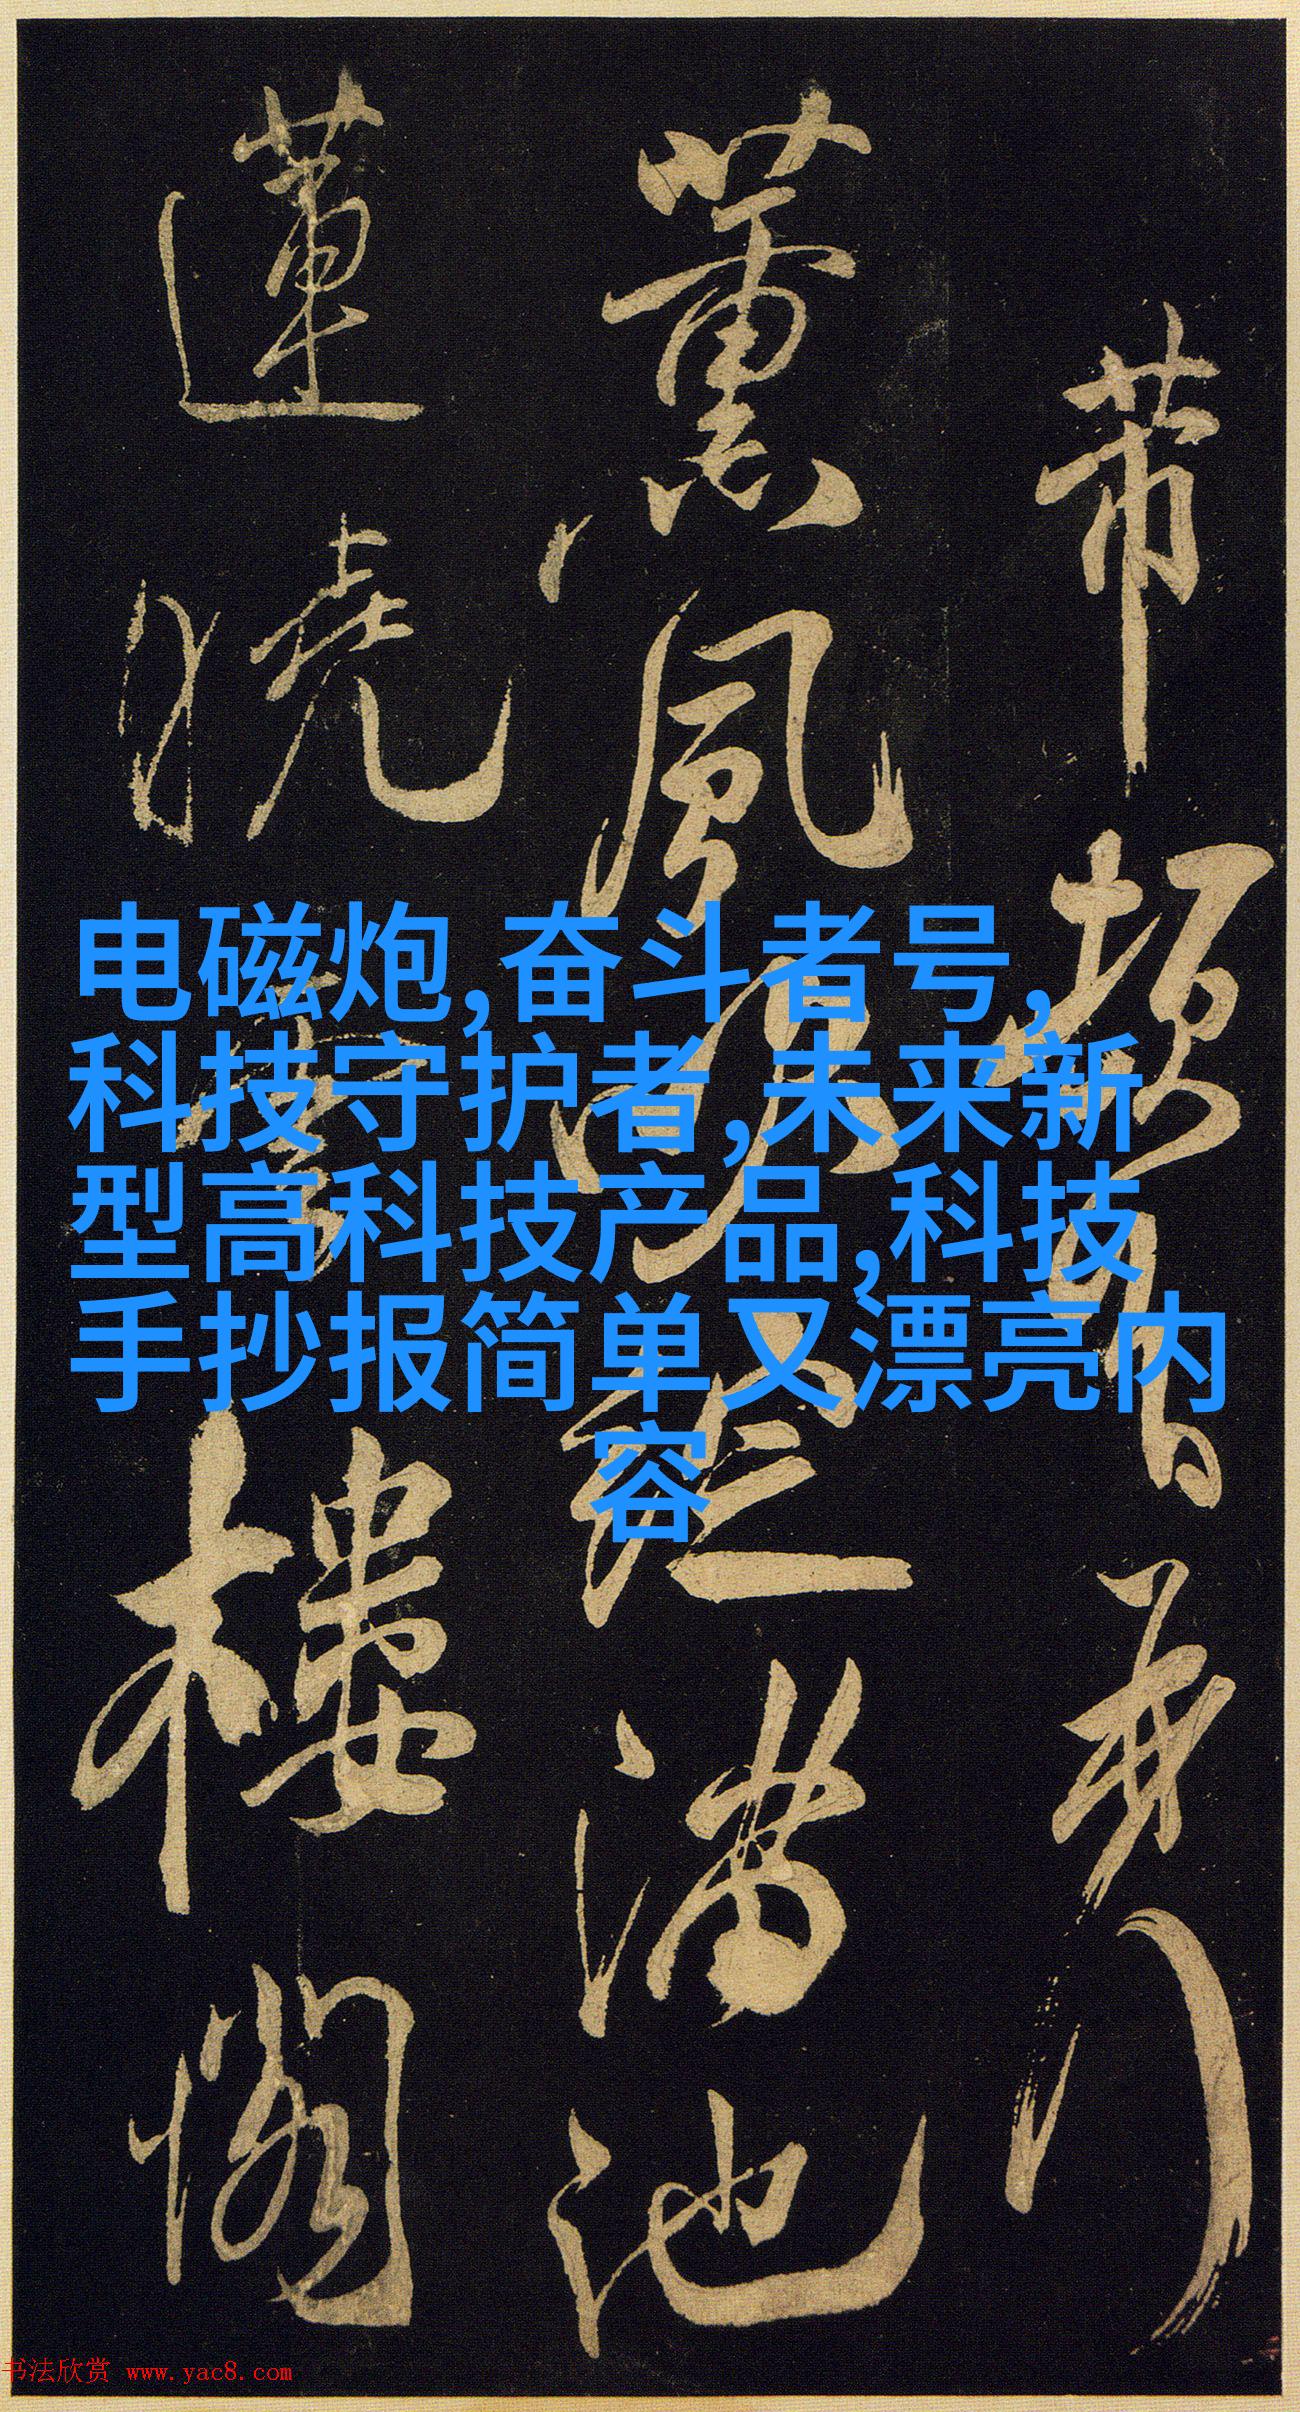 电磁炮,奋斗者号,
科技守护者,未来新
型高科技产品,科技
手抄报简单又漂亮内
容
帶
薰風 滿池
蓮曉 樓閣
书法欣赏 www.yac8.com